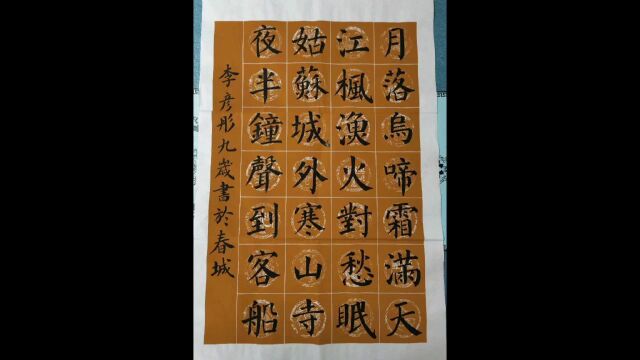 月落烏啼霜滿天
江楓漁火對愁眠
姑蘇城外寒山寺
夜半鐘聲到客船
李彥彤九歲書於春城